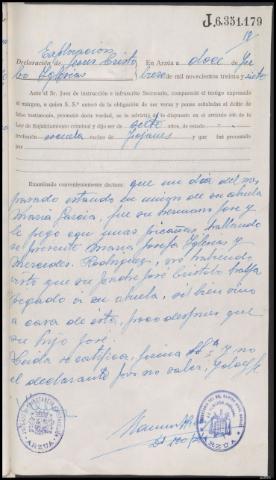 J.6.351.179
18
Exploración
Declaración de Jesus Cristo
bo Yglesias
En Arzúa a doce de Fe
brero de mil novecientos treinta y siete
Ante el Sr. Juez de instrucción e infrascrito Secretario, compareció el testigo expresado
al margen, a quien S. S.ª enteró de la obligación de ser veraz y penas señaladas al delito de
falso testimonio, prometió decir verdad, se le advirtió y lo dispuesto en el artículo 436 de la
Ley de Enjuiciamiento criminal y dijo ser de siete años, de estado
profesión escuela vecino de y que fué procesado
por
Examinado convenientemente declara: que un dia del mes
pasado estando en unión de su abuela
María García, fue su hermano José y
le pegó con unas hallando
se presente María Josefa Yglesias y
Mercedes Rodriguez, no habiendo
visto que su padre José Cristobo haya
pegado a su abuela, si bien vino
a casa de esta, poco despues que
su hijo José.
Leida se ratifica, firma S.Sª y no
el declarante por no saber, doy fe
ARZUA
ARZUA